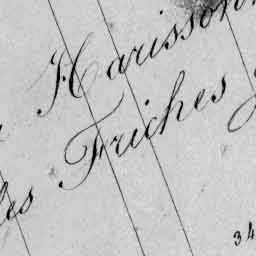 Harisson
les Friches
34